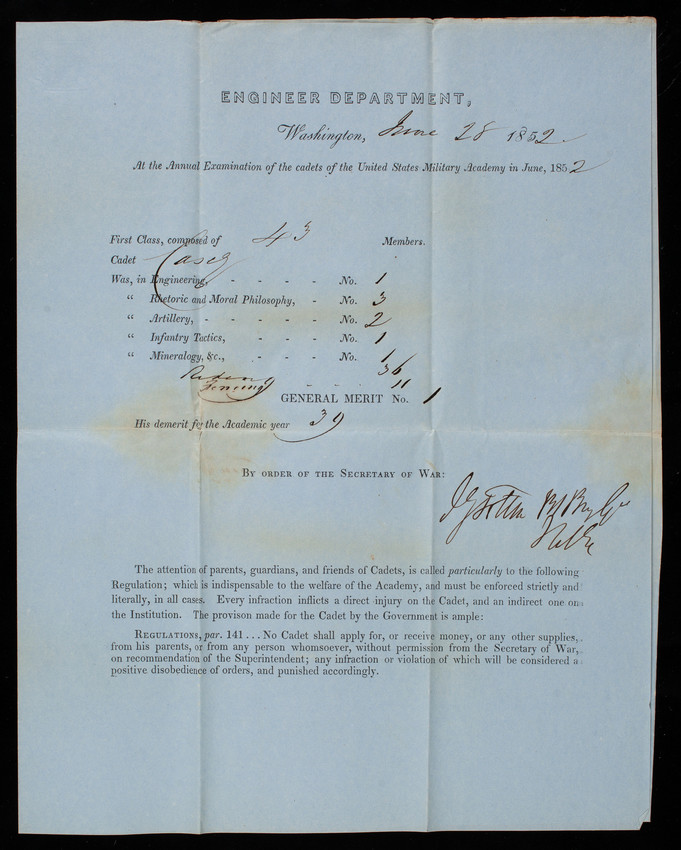 ENGINEER DEPARTMENT,
Washington, June 28 1852.
At the Annual Examination of the cadets of the United States Military Academy in June, 1852
First Class, composed of 43 Members.
Cadet Casey
Was, in Engineering, - - - - - No. 1
“ Rhetoric and Moral Philosophy, - No. 3
“ Artillery, - - - - - No. 2
“ Infantry Tactics, - - - No. 1
“ Mineralogy, &c., - - - No. 1
36
Fencing - - 11
GENERAL MERIT No. 1
His demerit for the Academic year 39
BY ORDER OF THE SECRETARY OF WAR:
The attention of parents, guardians, and friends of Cadets, is called particularly to the following
Regulation; which is indispensable to the welfare of the Academy, and must be enforced strictly and
literally, in all cases. Every infraction inflicts a direct injury on the Cadet, and an indirect one on
the Institution. The provison made for the Cadet by the Government is ample:
REGULATIONS, par. 141 . . . No Cadet shall apply for, or receive money, or any other supplies,
from his parents, or from any person whomsoever, without permission from the Secretary of War,
on recommendation of the Superintendent; any infraction or violation of which will be considered a
positive disobedience of orders, and punished accordingly.